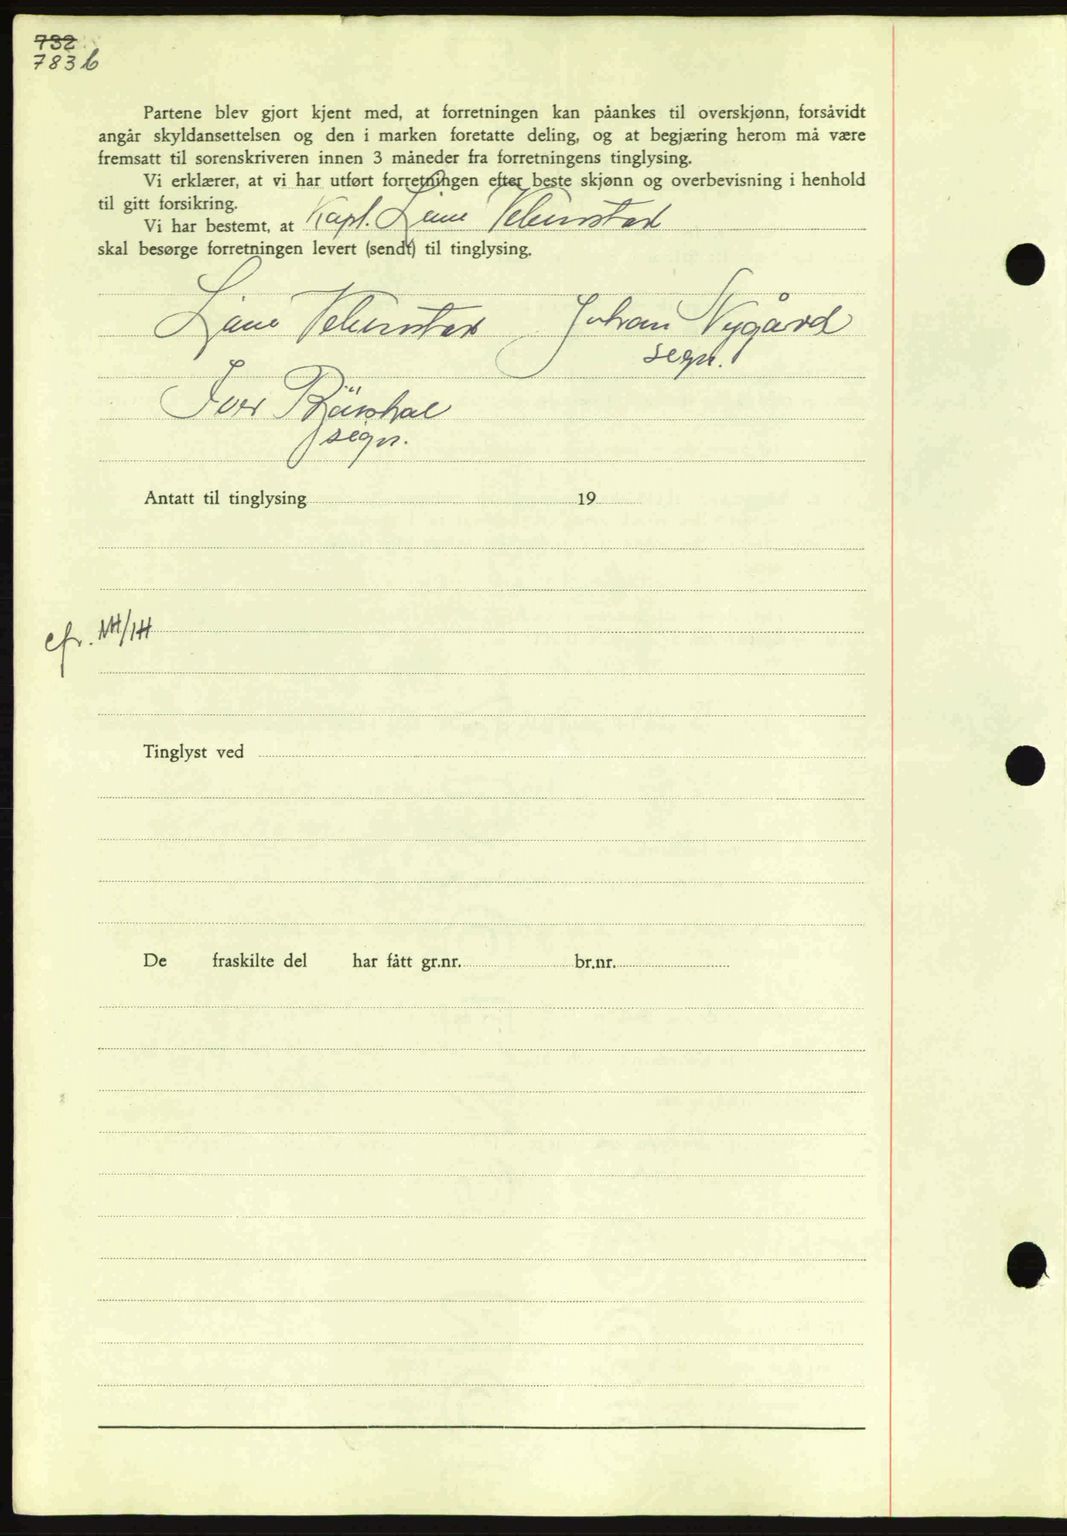 732
783 b
Partene blev gjort kjent med, at forretningen kan påankes til overskjønn, forsåvidt
angår skyldansettelsen og den i marken foretatte deling, og at begjæring herom må være
fremsatt til sorenskriveren innen 3 måneder fra forretningens tinglysing.
Vi erklærer, at vi har utført forretningen efter beste skjønn og overbevisning i henhold
til gitt forsikring.
Vi har bestemt, at Kapt.
skal besørge forretningen levert (sendt) til tinglysing.
Johan Nygård
segn.
Iver
segn.
Antatt til tinglysing 19
cfr.
Tinglyst ved
De fraskilte del har fått gr.nr. br.nr.